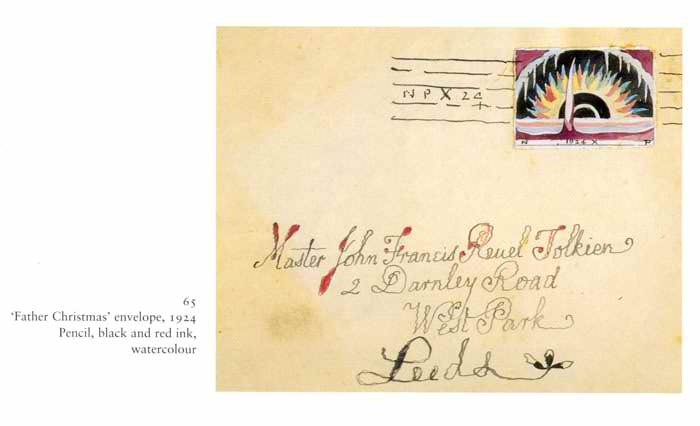 N P X 24
N 1924 X P
Master John Francis Reuel Tolkien
2 Darnley Road
West Park
Leeds
65
'Father Christmas' envelope, 1924
Pencil, black and red ink,
watercolour